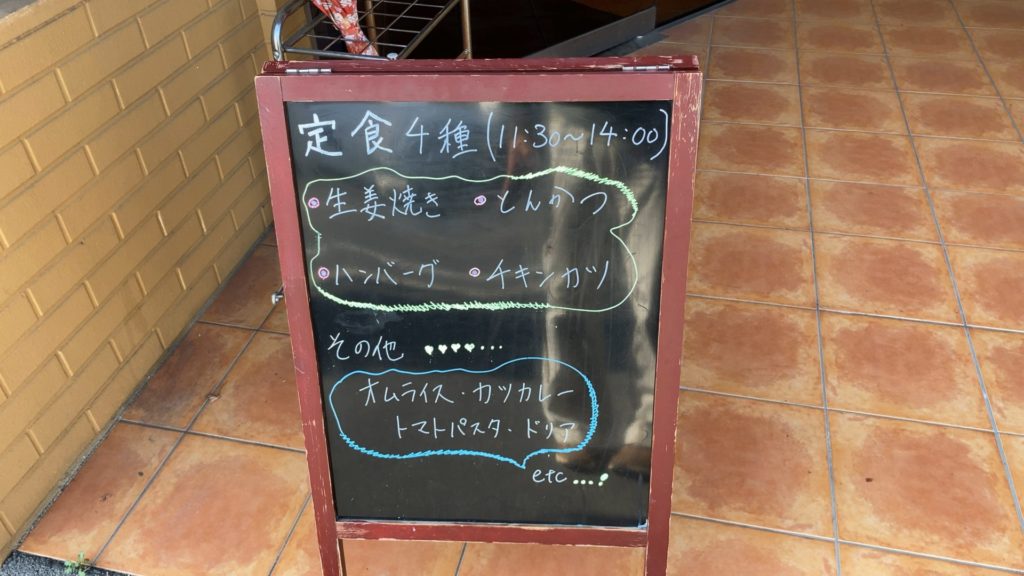 定食4種(11:30～14:00)
生姜焼き とんかつ
ハンバーグ チキンカツ
その他 ....…
オムライス・カツカレー
トマトパスタ・ドリア
etc....